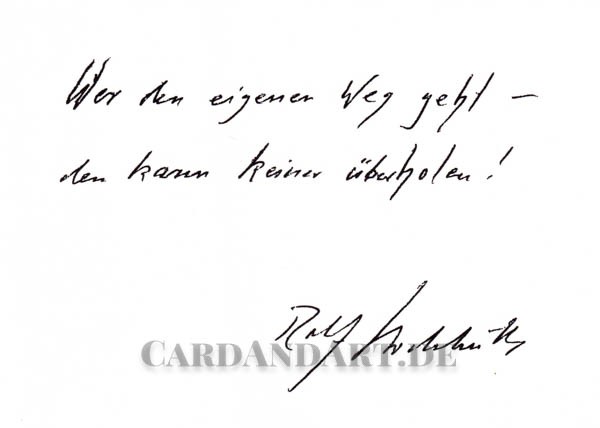 Wer den eigenen Weg geht –
den kann keiner überholen!
Rolf Hochhuth
CARDANDART.DE